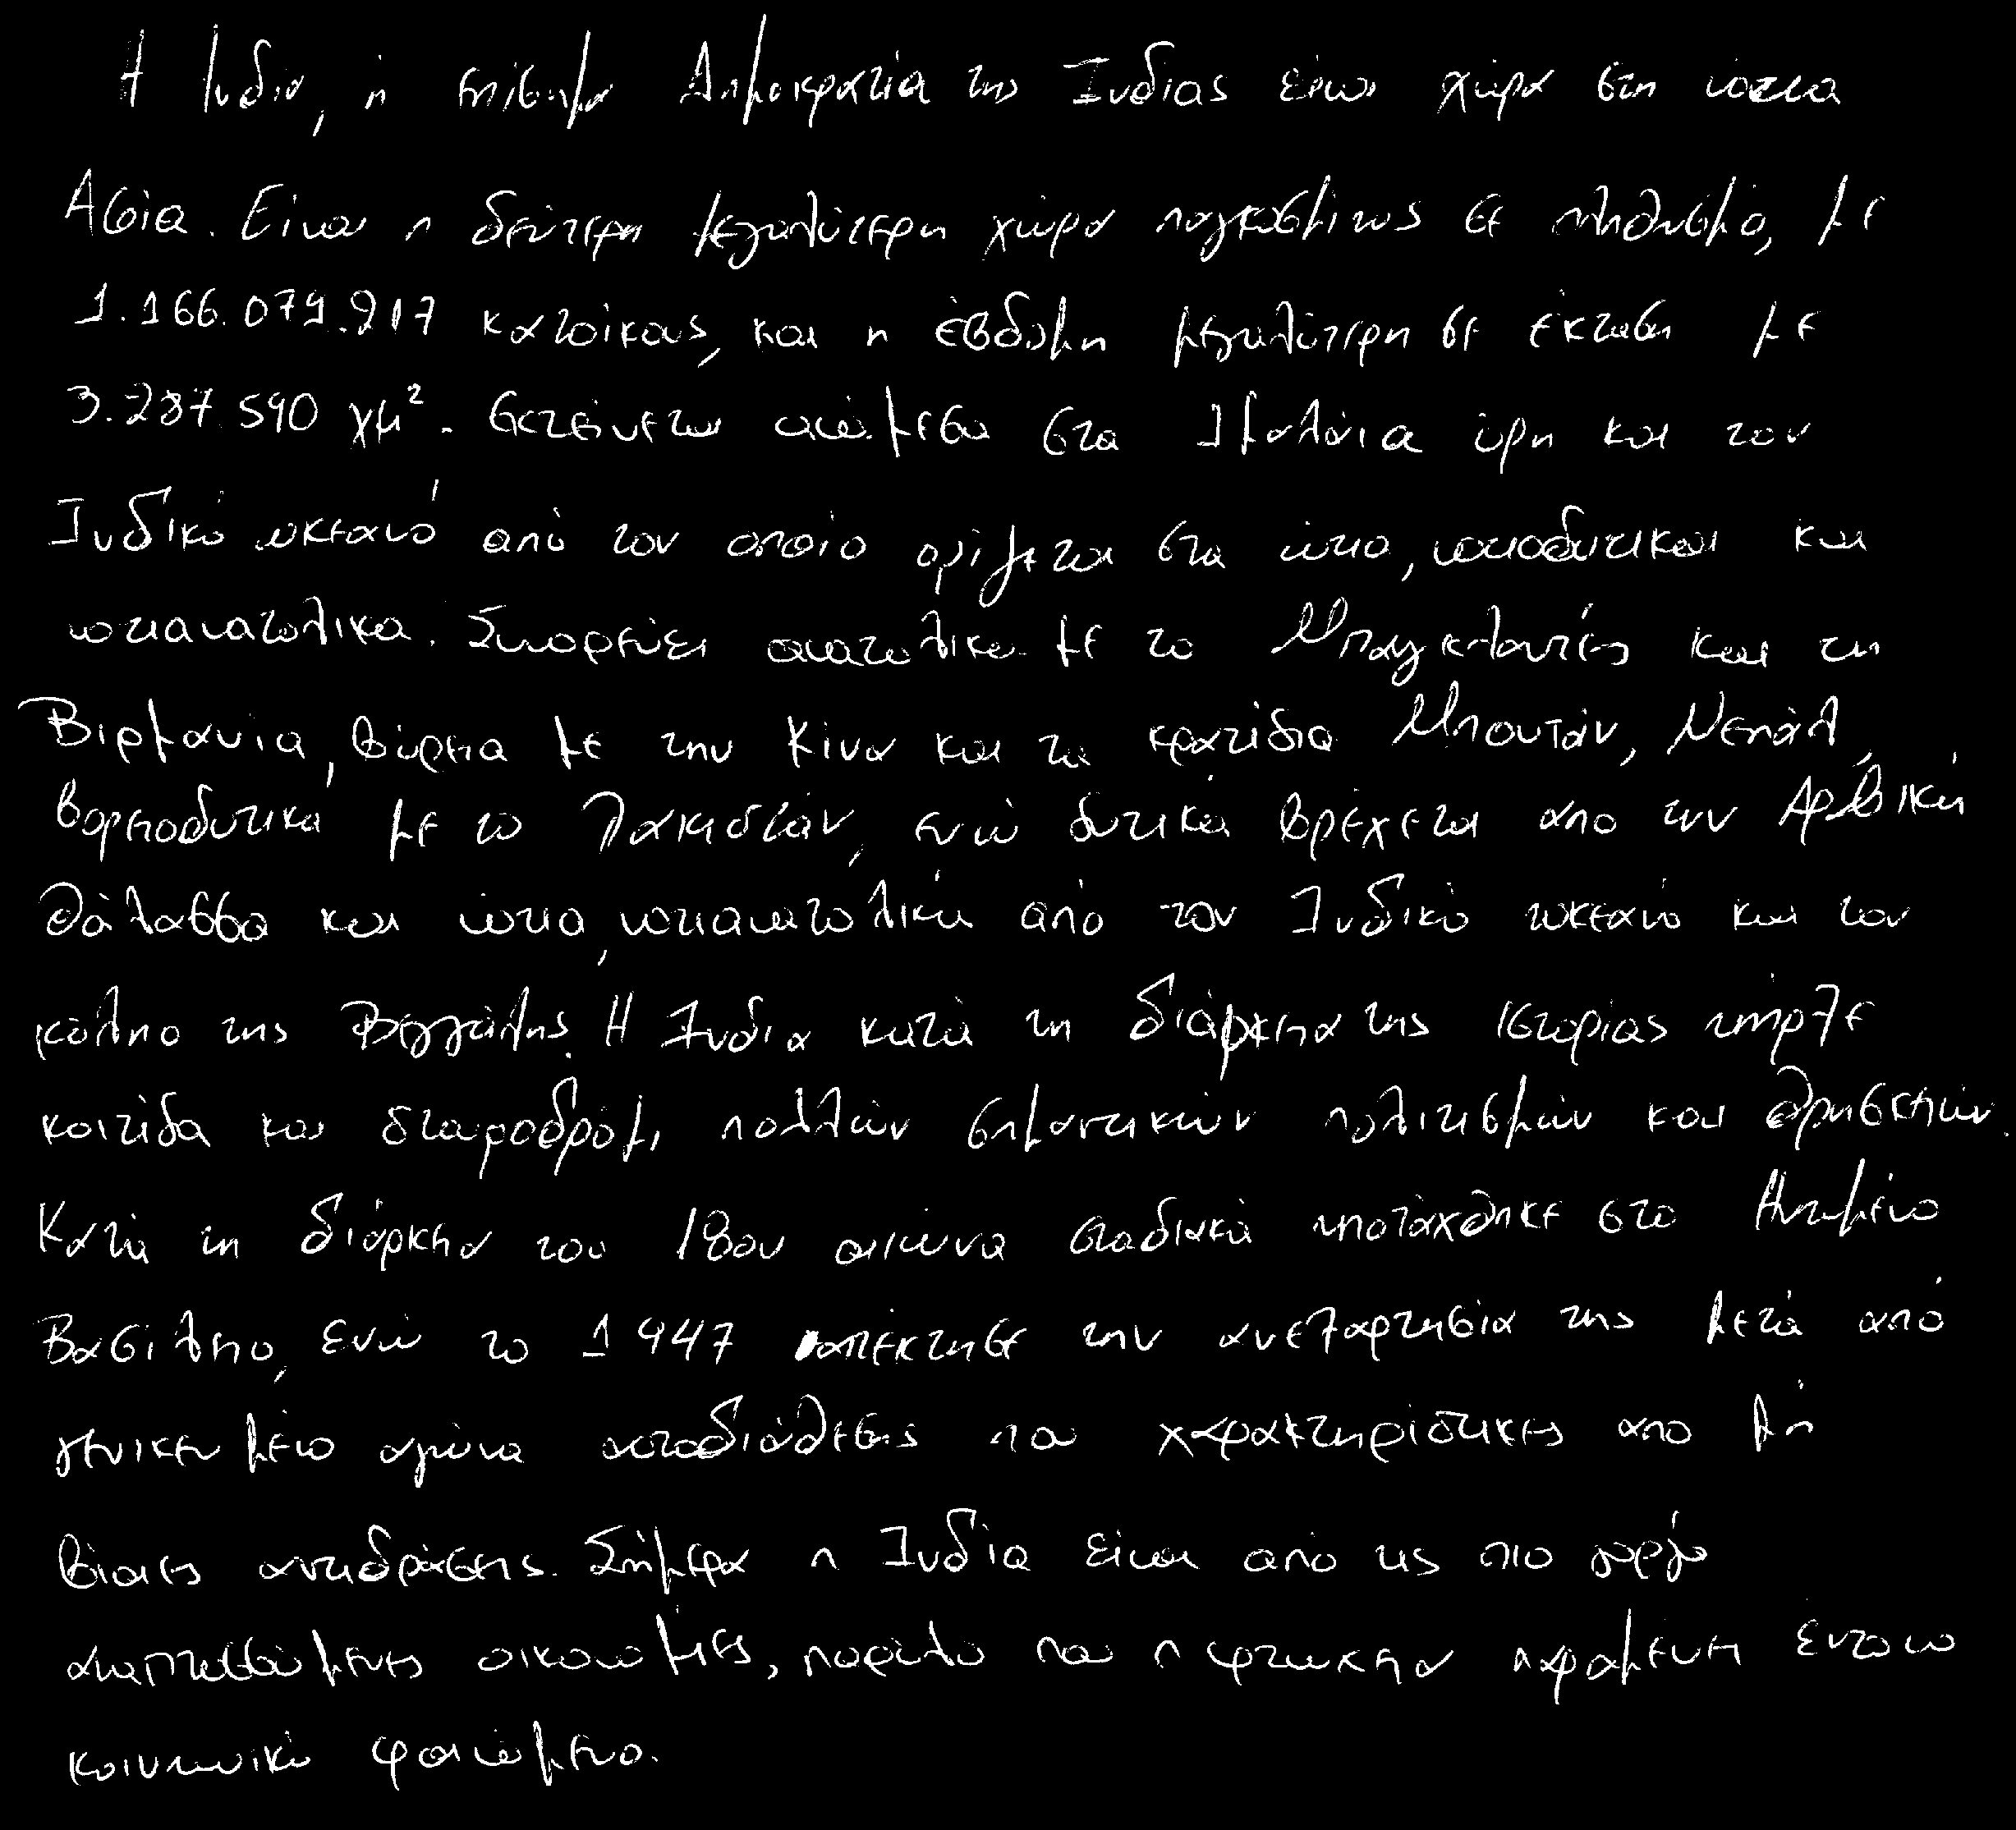 Η Ινδία, ή επίσημα Δημοκρατία της Ινδίας είναι χώρα στη νότια
Ασία. Είναι η δεύτερη μεγαλύτερη χώρα παγκοσμίως σε πληθυσμό, με
1.166.079.917 κατοίκους, και η έβδομη μεγαλύτερη σε έκταση με
3.287.590 χμ². Εκτείνεται ανάμεσα στα Ιμαλάια όρη και τον
Ινδικό ωκεανό από τον οποίο ορίζεται στα νότια, νοτιοδυτικά και
νοτιανατολικα. Συνορεύει ανατολικα με το Μπαγκλαντές και τη
Βιρμανία, βόρεια με την Κίνα και τα κρατίδια Μπουτάν, Νεπάλ,
βορειοδυτικά με το Πακιστάν, ενώ δυτικά βρέχεται απο την Αραβική
θάλασσα και νότια, νοτιανατολικά από τον Ινδικό ωκεανό και τον
κόλπο της Βεγγάλης. Η Ινδία κατά τη διάρκεια της ιστορίας υπήρξε
κοιτίδα και σταυροδρόμι πολλών σημαντικών πολιτισμών και θρησκειών.
Κατά τη διάρκεια του 18ου αιώνα σταδιακά υποτάχθηκε στο Ηνωμένο
Βασίλειο, ενώ το 1947 απέκτησε την ανεξαρτησία της μετά από
γενικευμένο αγώνα αυτοδιάθεσης που χαρακτηρίστηκες απο μή
βίαιες αντιδράσεις. Σήμερα η Ινδία είναι από τις πιο γοργά
αναπτυσσόμενες οικονομίες, παρόλο που η φτώχεια παραμένει έντονο
κοινωνικό φαινόμενο.